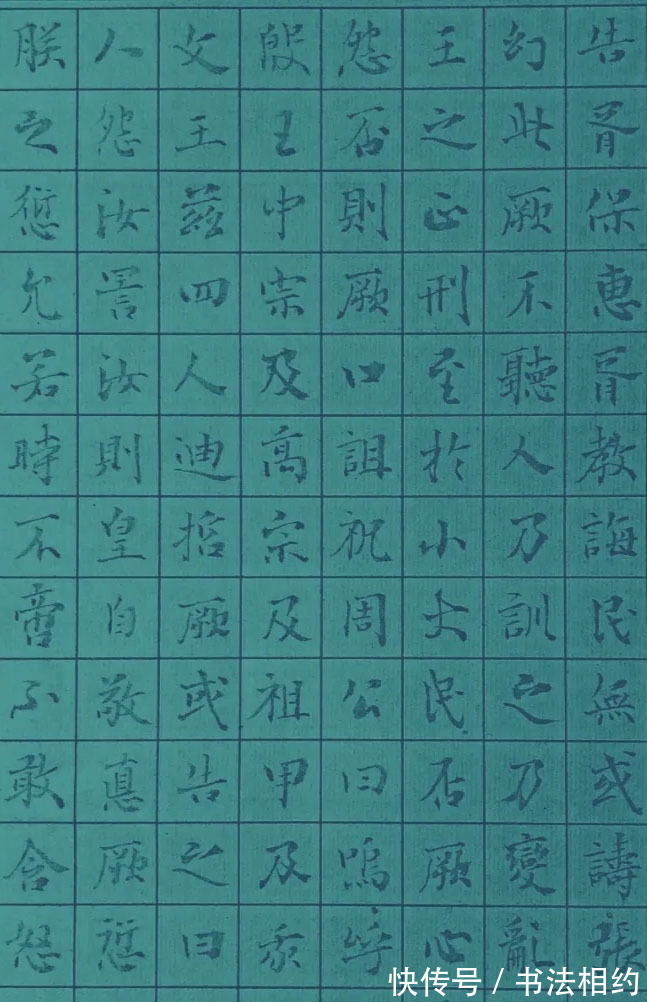 告胥保惠胥教誨民無或譸張
幻此厥不聽人乃訓之乃變亂
王之正刑至於小大民否厥心
怨否則厥口詛祝周公曰嗚呼
殷王中宗及高宗及祖甲及我
文王茲四人迪哲厥或告之曰
人怨汝詈汝則皇自敬悳厥愆
朕之愆允若時不啻不敢含怒
快传号 / 书法相约